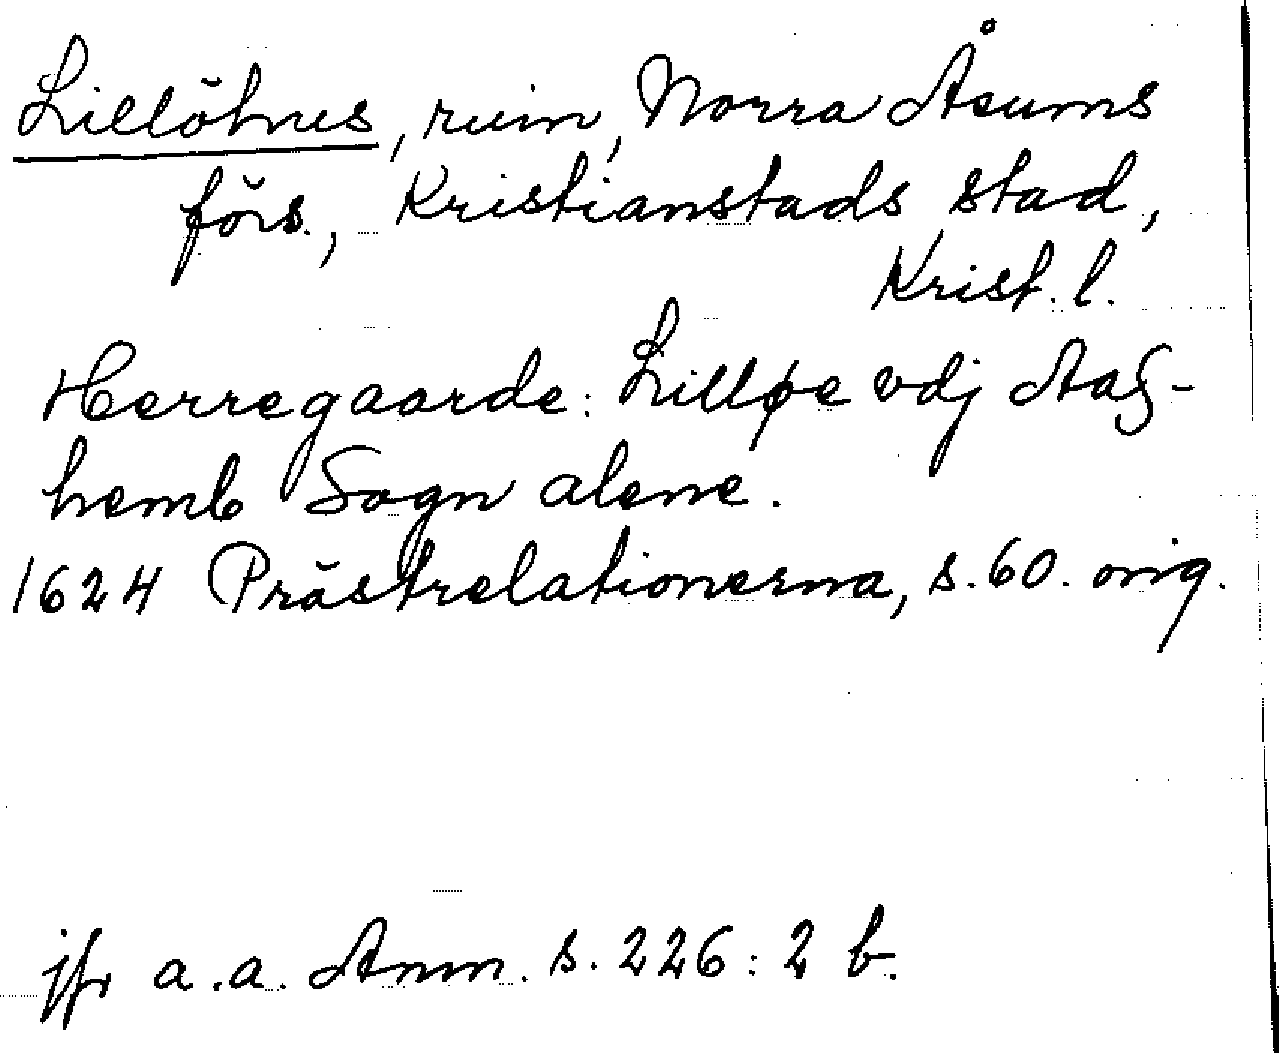 Lillöhus, ruin, Norra Åsums
förs., Kristianstads stad,
Krist. l.
Herregaarde: Lilløe vdj Aaß-
hemb Sogn alene.
1624 Prästrelationerna, s. 60. orig.
jfr a.a. Anm. s. 226: 2 b.